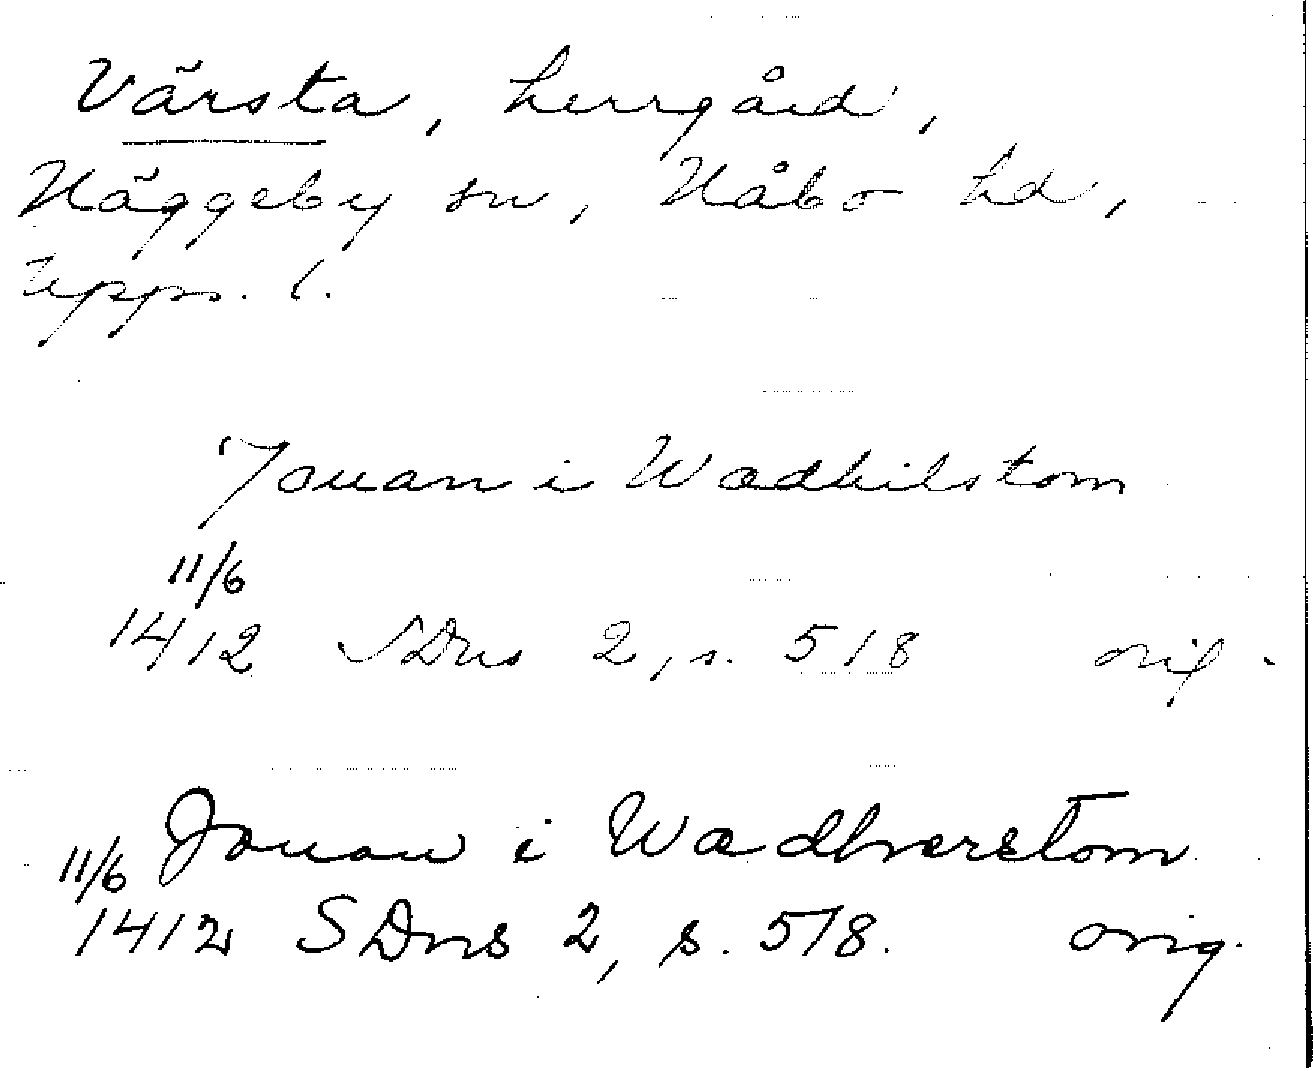 Värsta, herrgård,
Häggeby sn, Håbo hd,
Upps. l.
Jouan i Wædhilstom
11/6
1412 SDns 2, s. 518 orig.
Jouan i Wædhwerstom
11/6
1412 SDns 2, s. 518. orig.